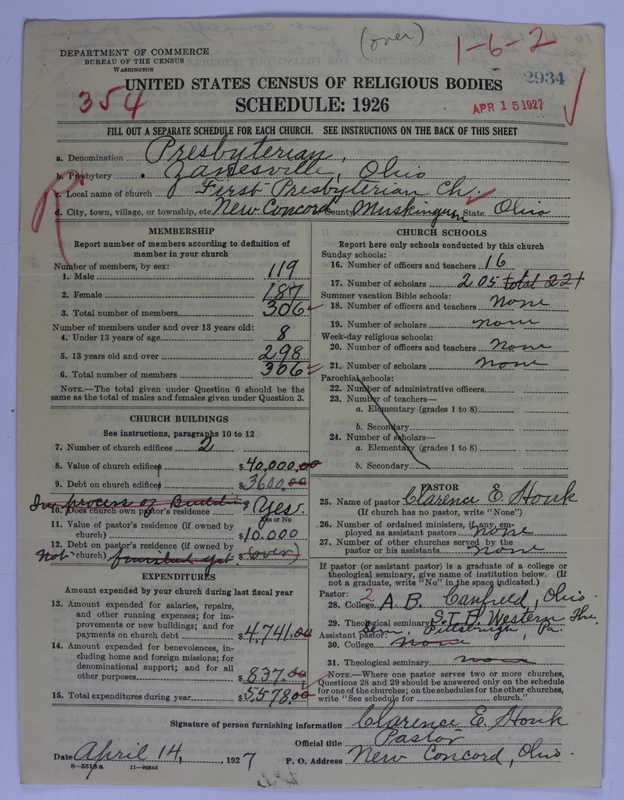 (over)
1-6-2
DEPARTMENT OF COMMERCE
BUREAU OF THE CENSUS
WASHINGTON
UNITED STATES CENSUS OF RELIGIOUS BODIES
2934
354
SCHEDULE: 1926
APR 15 1927
FILL OUT A SEPARATE SCHEDULE FOR EACH CHURCH. SEE INSTRUCTIONS ON THE BACK OF THIS SHEET
a. Denomination Presbyterian,
b. Presbytery Zanesville, Ohio
c. Local name of church First Presbyterian Ch.
d. City, town, village, or township, etc. New Concord County Muskingum State Ohio
MEMBERSHIP
Report number of members according to definition of
member in your church
Number of members, by sex:
1. Male 119
2. Female 187
3. Total number of members 306
Number of members under and over 13 years old:
4. Under 13 years of age 8
5. 13 years old and over 298
6. Total number of members 306
NOTE.—The total given under Question 6 should be the
same as the total of males and females given under Question 3.
CHURCH BUILDINGS
See instructions, paragraphs 10 to 12
7. Number of church edifices 2
8. Value of church edifices $40,000.00
9. Debt on church edifices $3600.00
In process of Building
10. Does church own pastor's residence Yes.
Yes or No
11. Value of pastor's residence (if owned by
church) $10.000
12. Debt on pastor's residence (if owned by
church) Not finished yet $(over)
EXPENDITURES
Amount expended by your church during last fiscal year
13. Amount expended for salaries, repairs,
and other running expenses; for im-
provements or new buildings; and for
payments on church debt $4,741.00
14. Amount expended for benevolences, in-
cluding home and foreign missions; for
denominational support; and for all
other purposes $837.00
15. Total expenditures during year $5578.00
CHURCH SCHOOLS
Report here only schools conducted by this church
Sunday schools:
16. Number of officers and teachers 16
17. Number of scholars 205 total 221
Summer vacation Bible schools:
18. Number of officers and teachers none
19. Number of scholars none
Week-day religious schools:
20. Number of officers and teachers none
21. Number of scholars none
Parochial schools:
22. Number of administrative officers
23. Number of teachers—
a. Elementary (grades 1 to 8)
b. Secondary
24. Number of scholars—
a. Elementary (grades 1 to 8)
b. Secondary
PASTOR
25. Name of pastor Clarence E. Houk
(If church has no pastor, write "None")
26. Number of ordained ministers, if any, em-
ployed as assistant pastors none
27. Number of other churches served by the
pastor or his assistants none
If pastor (or assistant pastor) is a graduate of a college or
theological seminary, give name of institution below. (If
not a graduate, write "No" in the space indicated.)
Pastor: 2
28. College A.B. Canfield, Ohio.
29. Theological seminary S.T.B. Western The.
Sem., Pittsburgh, Pa.
Assistant pastor:
30. College none
31. Theological seminary none
NOTE.—Where one pastor serves two or more churches,
Questions 28 and 29 should be answered only on the schedule
for one of the churches; on the schedules for the other churches,
write "See schedule for church."
Signature of person furnishing information Clarence E. Houk
Official title Pastor
Date April 14, 1927 P. O. Address New Concord, Ohio.